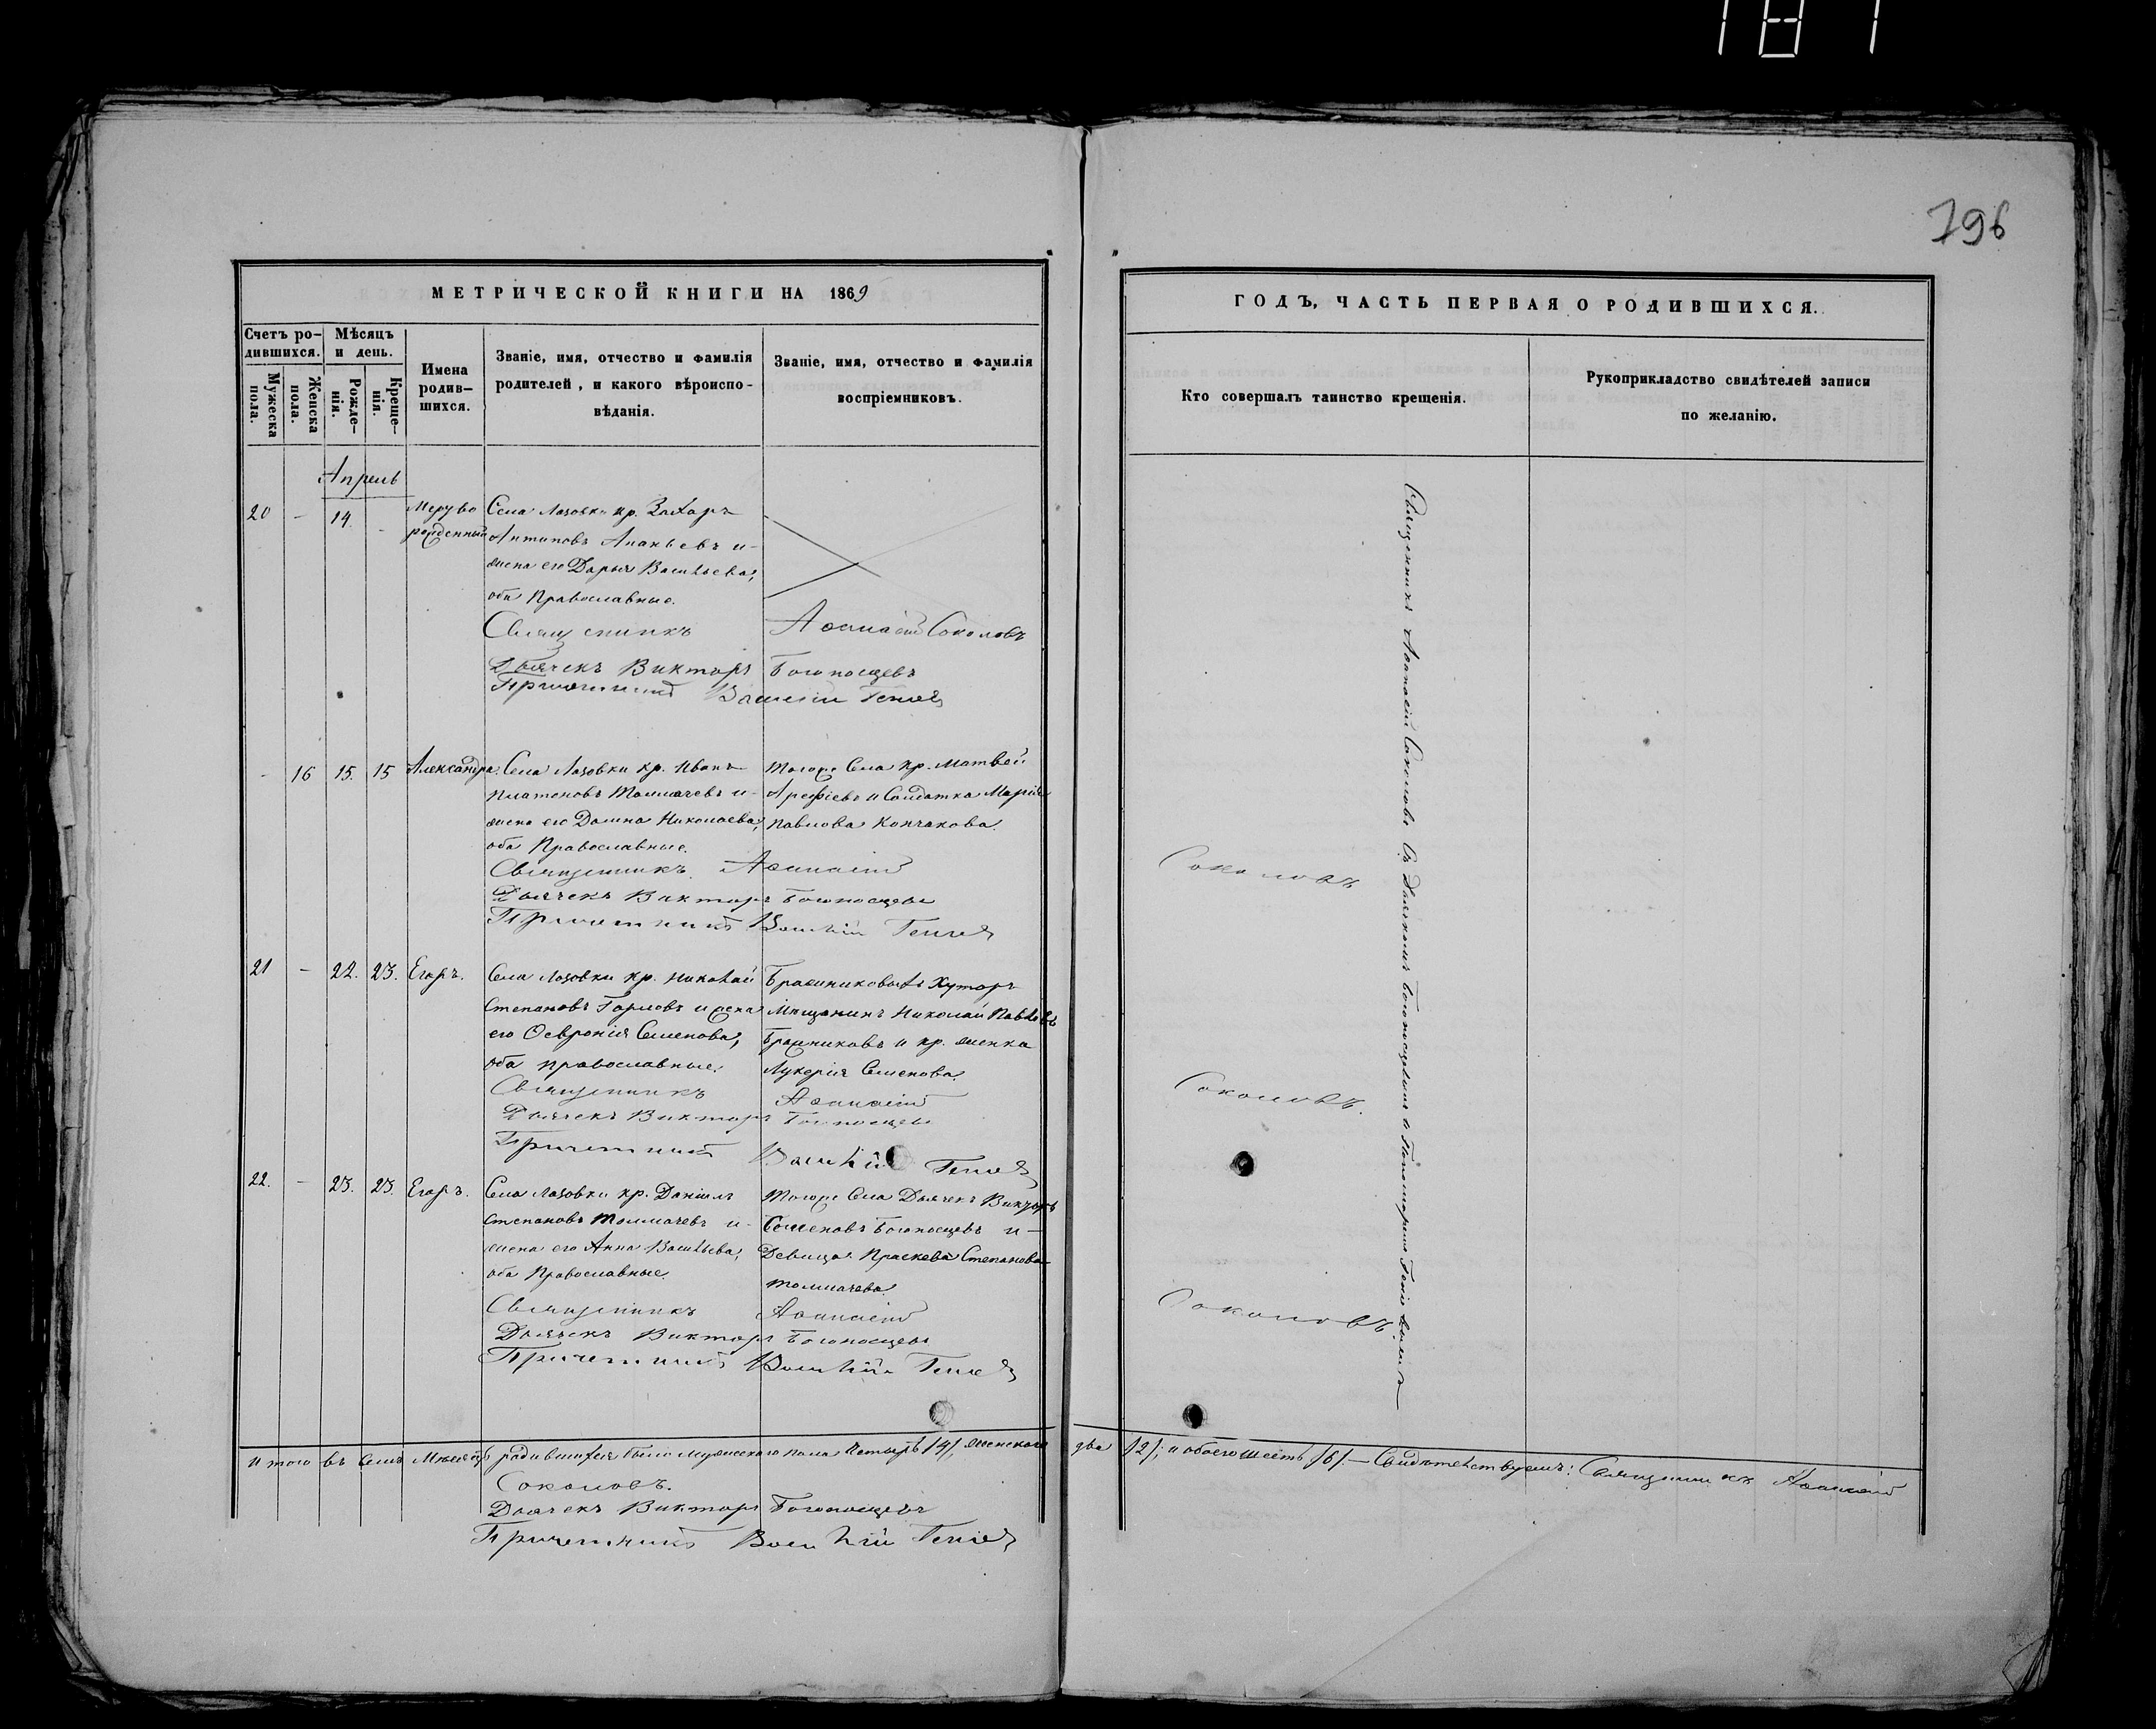 187
796
МЕТРИЧЕСКОЙ КНИГИ НА 1869
Счетъ ро-
дившихся.
Мужеска
пола.
Женска
пола.
Мѣсяцъ
и день.
Рожде-
нія.
Креще-
нія.
Имена
родив-
шихся.
Званіе, имя, отчество и фамилія
родителей, и какого вѣроиспо-
вѣданія.
Званіе, имя, отчество и фамилія
воспріемниковъ.
Апрель
20 - 14. - Мертво
рожденный
Села Лазовки кр. Захаръ
Антиповъ Ананьевъ и
жена его Дарья Васильева,
оба Православные.
Священникъ Аѳанасій Соколовъ
Дьячекъ Викторъ Богоносцевъ
Причетникъ Василій
- 16 15. 15 Александра.
Села Лазовки кр. Иванъ
Платоновъ Толмачевъ и
жена его Домна Николаева,
оба Православные.
Тогоже Села кр. Матвей
Арефіевъ и Солдатка Марія
Павлова Кончакова.
Священникъ. Аѳанасій
Соколовъ
Дьячекъ Викторъ Богоносцевъ
Причетникъ Василій
21 - 22. 23. Егоръ.
Села Лазовки кр. Николай
Степановъ Горловъ и жена
его Ѳевронія Семенова,
оба православные.
Бражниковыхъ Хуторъ
Мещанинъ Николай Павловъ
Бражниковъ и кр. женка
Лукерія Семенова.
Священникъ Аѳанасій
Соколовъ.
Дьячекъ Викторъ Богоносцевъ
Причетникъ Василій
22. - 23. 23. Егоръ.
Села Лазовки кр. Даніилъ
Степановъ Толмачевъ и
жена его Анна Васильева,
оба Православные.
Тогоже Села Дьячекъ Викторъ
Семеновъ Богоносцевъ и
Девица Праскева Степанова
Толмачева.
Священникъ Аѳанасій
Соколовъ.
Дьячекъ Викторъ Богоносцевъ
Причетникъ Василій
Итого въ семъ Месяцѣ родившихся было мужескаго пола четыре /4/, женскаго два /2/; и обоего шесть /6/. — Свидѣтельствуемъ: Священникъ Аѳанасій
Соколовъ.
Дьячекъ Викторъ Богоносцевъ
Причетникъ Василій
ГОДЪ, ЧАСТЬ ПЕРВАЯ О РОДИВШИХСЯ.
Кто совершалъ таинство крещенія.
Рукоприкладство свидѣтелей записи
по желанію.
Священникъ Аѳанасій Соколовъ Съ Дьячкомъ Богоносцевымъ и Пономаремъ